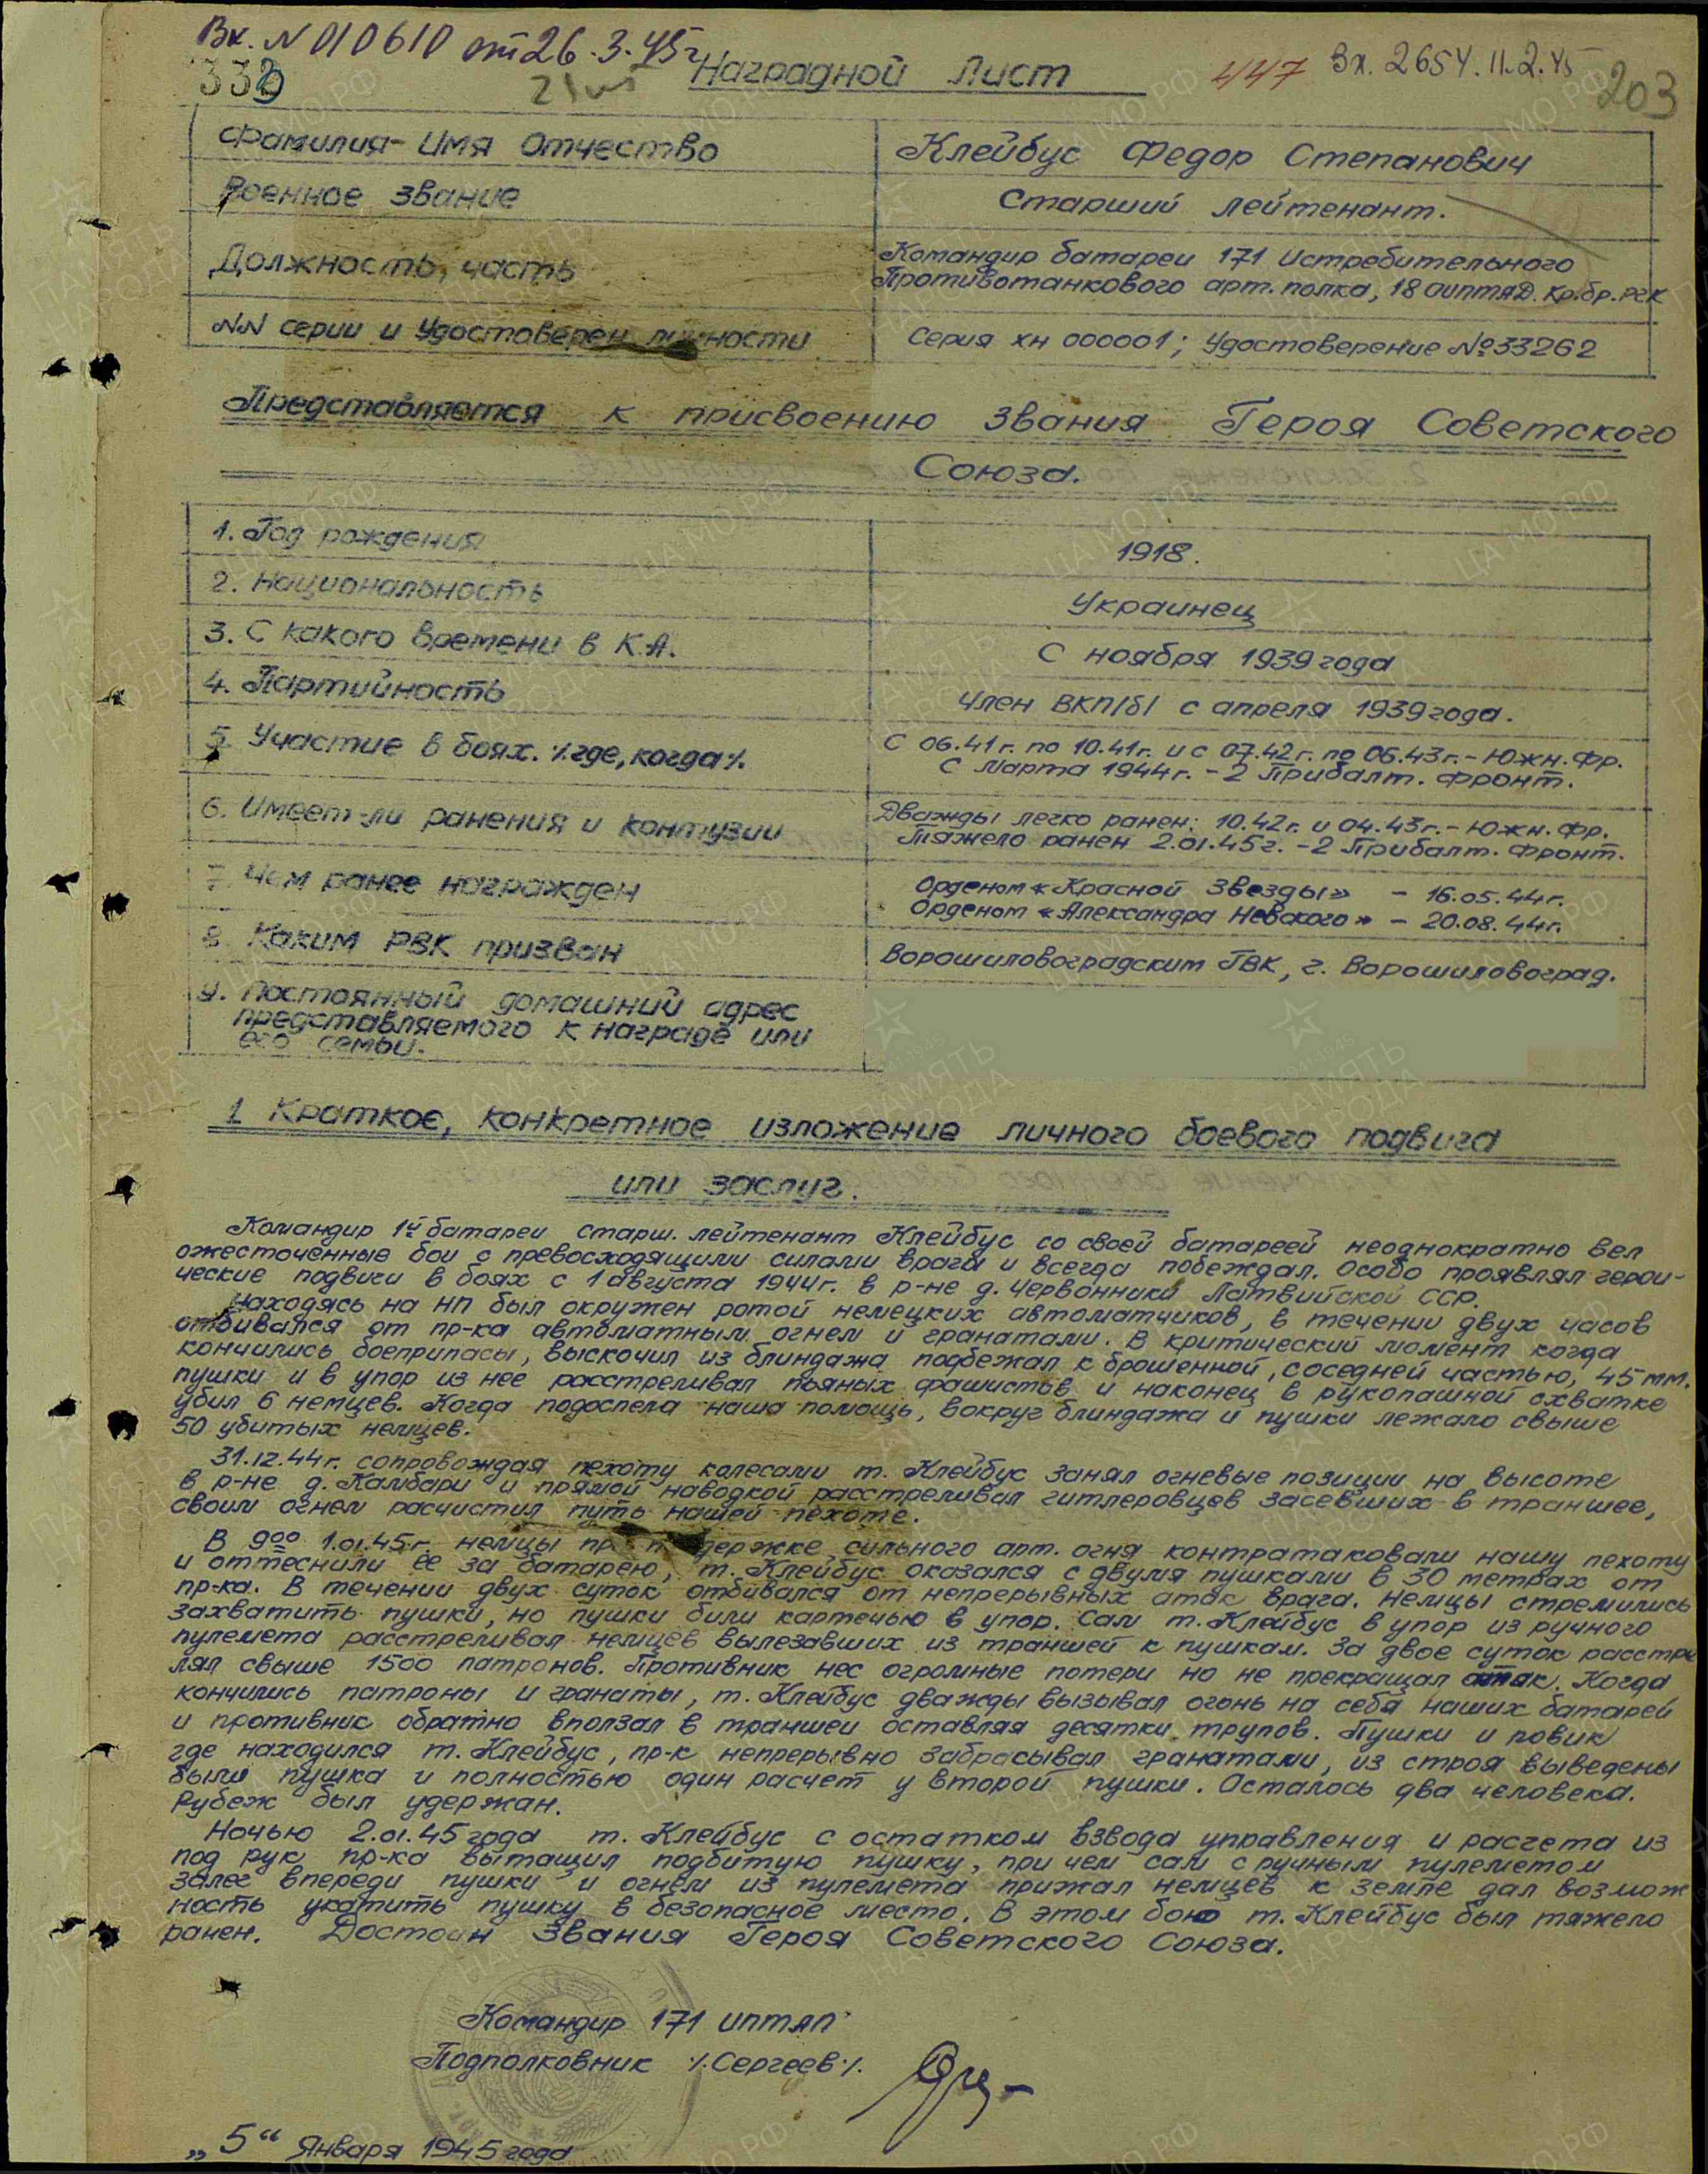 Вх. N 010610 от 26.3.45г
Наградной Лист
447
Вх. 2654. 11.2.45
203
Фамилия-Имя Отчество
Клейбус Федор Степанович
Военное звание
Старший лейтенант.
Должность, часть
Командир батареи 171 Истребительного
Противотанкового арт. полка, 18 ОИПТАД. Кр. бр. РГК
NN серии и Удостоверен личности
Серия ХН 000001; Удостоверение №33262
Представляется к присвоению звания Героя Советского
Союза.
1. Год рождения
1918.
2. Национальность
Украинец
3. С какого времени в К.А.
С ноября 1939 года
4. Партийность
Член ВКП/б/ с апреля 1939 года.
5. Участие в боях. ⁒где, когда⁒.
С 06.41г. по 10.41г. и с 07.42г. по 06.43г. - Южн. Фр.
С Марта 1944г. - 2 Прибалт. фронт.
6. Имеет-ли ранения и контузии
Дважды легко ранен: 10.42г. и 04.43г. - Южн. Фр.
Тяжело ранен 2.01.45г. - 2 Прибалт. фронт.
7. Чем ранее награжден
Орденом «Красной Звезды» - 16.05.44г.
Орденом «Александра Невского» - 20.08.44г.
8. Каким РВК призван
Ворошиловоградским ГВК, г. Ворошиловоград.
9. Постоянный домашний адрес
представляемого к награде или
его семьи.
1 Краткое, конкретное изложение личного боевого подвига
или заслуг.
Командир 1й батареи старш. лейтенант Клейбус со своей батареей неоднократно вел
ожесточенные бои с превосходящими силами врага и всегда побеждал. Особо проявлял герои-
ческие подвиги в боях с 1 августа 1944г. в р-не д. Червонники Латвийской ССР.
Находясь на НП был окружен ротой немецких автоматчиков, в течении двух часов
отбивался от пр-ка автоматным огнем и гранатами. В критический момент когда
кончились боеприпасы, выскочил из блиндажа подбежал к брошенной, соседней частью, 45 мм.
пушки и в упор из нее расстреливал пьяных фашистов и наконец в рукопашной схватке
убил 6 немцев. Когда подоспела наша помощь, вокруг блиндажа и пушки лежало свыше
50 убитых немцев.
31.12.44г. сопровождая пехоту колесами т. Клейбус занял огневые позиции на высоте
в р-не д. Камбари и прямой наводкой расстреливал гитлеровцев засевших в траншее,
своим огнем расчистил путь нашей пехоте.
В 9⁰⁰ 1.01.45г. немцы при поддержке сильного арт. огня контратаковали нашу пехоту
и оттеснили ее за батарею, т. Клейбус оказался с двумя пушками в 30 метрах от
пр-ка. В течении двух суток отбивался от непрерывных атак врага. Немцы стремились
захватить пушки, но пушки били картечью в упор. Сам т. Клейбус в упор из ручного
пулемета расстреливал немцев вылезавших из траншей к пушкам. За двое суток расстре
лял свыше 1500 патронов. Противник нес огромные потери но не прекращал атак. Когда
кончились патроны и гранаты, т. Клейбус дважды вызывал огонь на себя наших батарей
и противник обратно вползал в траншеи оставляя десятки трупов. Пушки и ровик
где находился т. Клейбус, пр-к непрерывно забрасывал гранатами, из строя выведены
были пушка и полностью один расчет у второй пушки. Осталось два человека.
Рубеж был удержан.
Ночью 2.01.45 года т. Клейбус с остатком взвода управления и расчета из
под рук пр-ка вытащил подбитую пушку, при чем сам с ручным пулеметом
залег впереди пушки и огнем из пулемета прижал немцев к земле дал возмож
ность укатить пушку в безопасное место. В этом бою т. Клейбус был тяжело
ранен. Достоин Звания Героя Советского Союза.
Командир 171 ИПТАП
Подполковник ⁒Сергеев⁒.
„5“ Января 1945 года